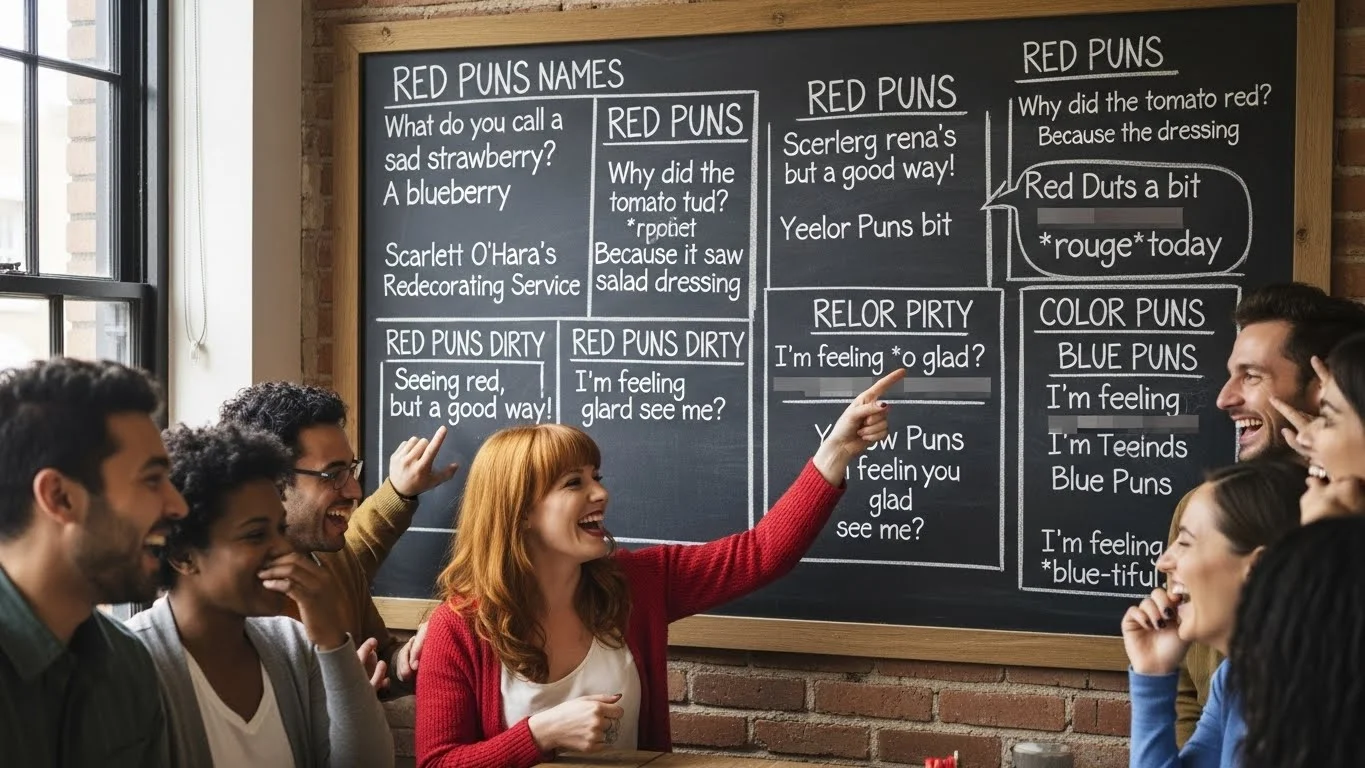 RED PUNS NAMES
What do you call a
sad strawberry?
A blueberry
Scarlett O'Hara's
Redecorating Service
RED PUNS
Why did the
tomato tud?
*rpobet
Because it saw
salad dressing
RED PUNS
Scerlerg rena's
but a good way!
Yeelor Puns bit
RED PUNS
Why did the tomato red?
Because the dressing
Red Duts a bit
*rouge*today
RED PUNS DIRTY
Seeing red,
but a good way!
RED PUNS DIRTY
I'm feeling
glard see me?
RELOR PIRTY
I'm feeling *o glad?
Puns
feelin you
glad
see me?
COLOR PUNS
BLUE PUNS
I'm feeling
I'm Teeinds
Blue Puns
I'm feeling
*blue-tiful